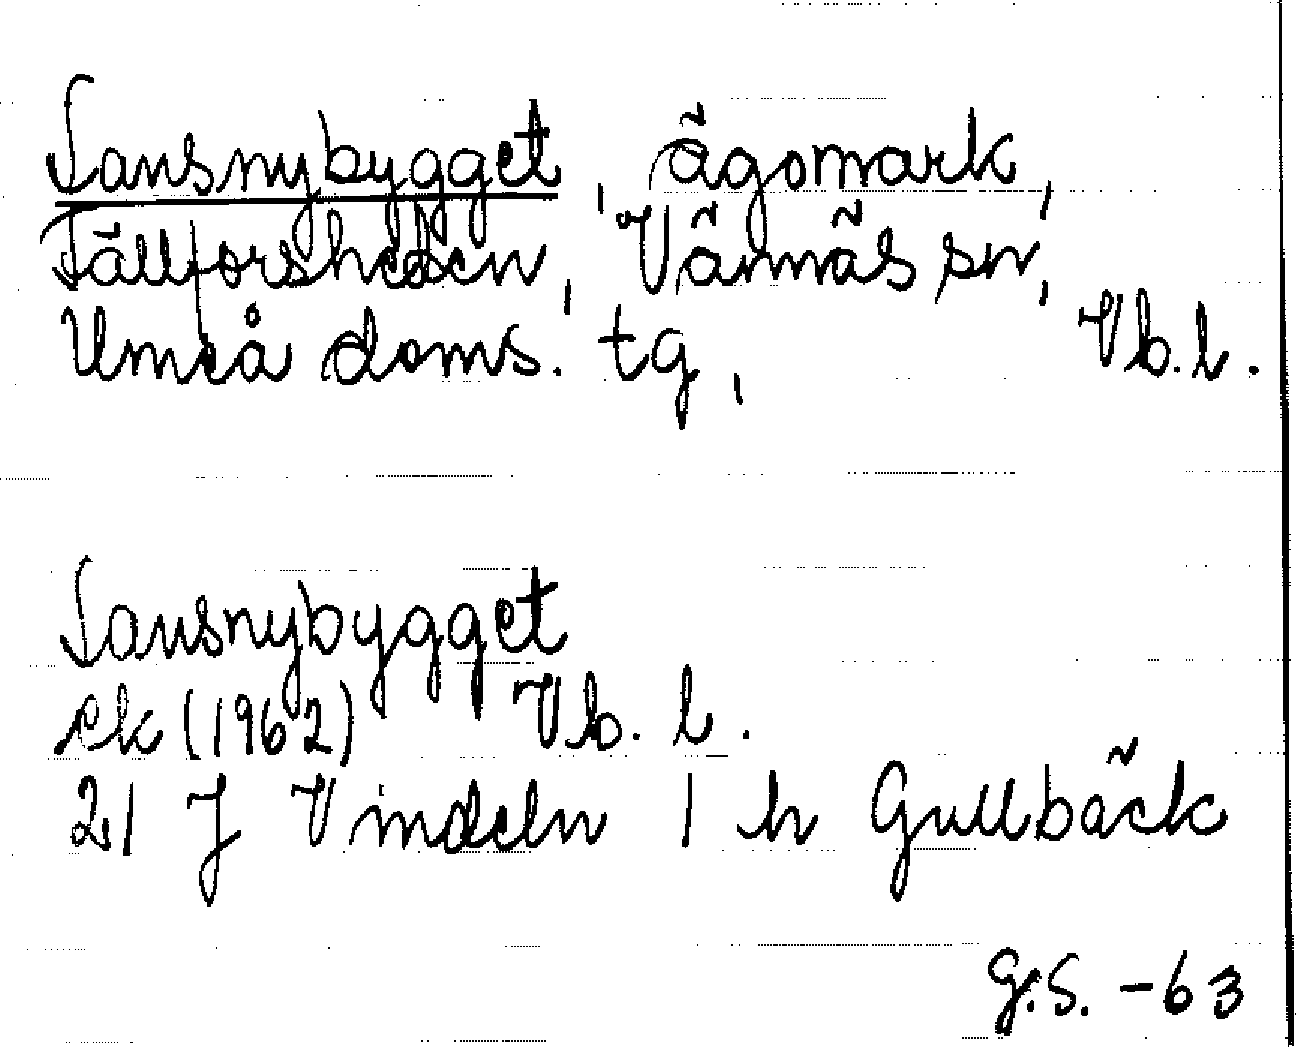 Jansnybygget, ägomark,
Tällforsheden, Vännäs sn,
Umeå doms. tg, Vb.l.
Jansnybygget
ek (1962) Vb. l.
21 J Vindeln 1 h Gullbäck
G.S. -63